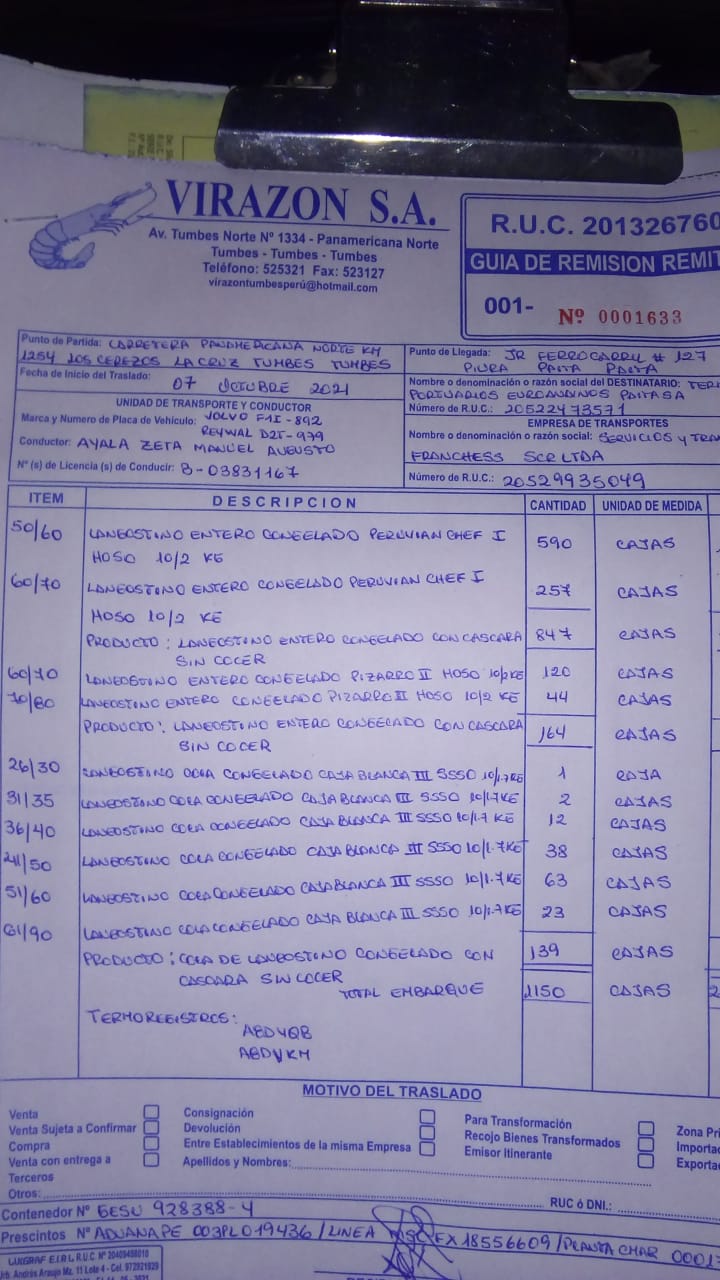 VIRAZON S.A.
Av. Tumbes Norte Nº 1334 - Panamericana Norte
Tumbes - Tumbes - Tumbes
Teléfono: 525321 Fax: 523127
virazontumbesperú@hotmail.com
R.U.C. 201326760
GUIA DE REMISION REMIT
001- Nº 0001633
Punto de Partida: CARRETERA PANAMERICANA NORTE KM
1254 LOS CEREZOS LA CRUZ TUMBES TUMBES
Fecha de Inicio del Traslado: 07 OCTUBRE 2021
UNIDAD DE TRANSPORTE Y CONDUCTOR
Marca y Numero de Placa de Vehículo: VOLVO F1I-892
REYWAL D2T-979
Conductor: AYALA ZETA MANUEL AUGUSTO
Nº (s) de Licencia (s) de Conducir: B-03831167
Punto de Llegada: JR FERROCARRIL # 127
PIURA PAITA PAITA
Nombre o denominación o razón social del DESTINATARIO: TER
PORTUARIOS EUROANDINOS PAITA SA
Número de R.U.C.: 20522473571
EMPRESA DE TRANSPORTES
Nombre o denominación o razón social: SERVICIOS Y TRA
FRANCHESS SCR LTDA
Número de R.U.C.: 20529935049
ITEM DESCRIPCION CANTIDAD UNIDAD DE MEDIDA
50/60 LANGOSTINO ENTERO CONGELADO PERUVIAN CHEF I 590 CAJAS
HOSO 10/2 KG
60/70 LANGOSTINO ENTERO CONGELADO PERUVIAN CHEF I 257 CAJAS
HOSO 10/2 KG
PRODUCTO: LANGOSTINO ENTERO CONGELADO CON CASCARA 847 CAJAS
SIN COCER
60/70 LANGOSTINO ENTERO CONGELADO PIZARRO II HOSO 10/2KG 120 CAJAS
70/80 LANGOSTINO ENTERO CONGELADO PIZARRO II HOSO 10/2 KG 44 CAJAS
PRODUCTO: LANGOSTINO ENTERO CONGELADO CON CASCARA 164 CAJAS
SIN COCER
26/30 LANGOSTINO COLA CONGELADO CAJA BLANCA III SSSO 10/1.7KG 1 CAJA
31/35 LANGOSTINO COLA CONGELADO CAJA BLANCA III SSSO 10/1.7KG 2 CAJAS
36/40 LANGOSTINO COLA CONGELADO CAJA BLANCA III SSSO 10/1.7 KG 12 CAJAS
41/50 LANGOSTINO COLA CONGELADO CAJA BLANCA III SSSO 10/1.7KG 38 CAJAS
51/60 LANGOSTINO COLA CONGELADO CAJA BLANCA III SSSO 10/1.7KG 63 CAJAS
61/90 LANGOSTINO COLA CONGELADO CAJA BLANCA III SSSO 10/1.7KG 23 CAJAS
PRODUCTO: COLA DE LANGOSTINO CONGELADO CON 139 CAJAS
CASCARA SIN COCER
TOTAL EMBARQUE 1150 CAJAS 2
TERMOREGISTROS:
ABDYQB
ABDVKM
MOTIVO DEL TRASLADO
Venta
Venta Sujeta a Confirmar
Compra
Venta con entrega a
Terceros
Consignación
Devolución
Entre Establecimientos de la misma Empresa
Apellidos y Nombres:
Para Transformación
Recojo Bienes Transformados
Emisor Itinerante
Zona Pri
Importac
Exporta
Otros:
RUC ó DNI.:
Contenedor Nº GESU 928388-4
Prescintos Nº ADUANA PE 003PL019436/LINEA FX18556609/PLANTA CHAR 0001
LUIGRAF E.I.R.L. R.U.C. Nº 20409458010
Urb. Andrés Araujo Mz. 11 Lote 4 - Cel. 972921929